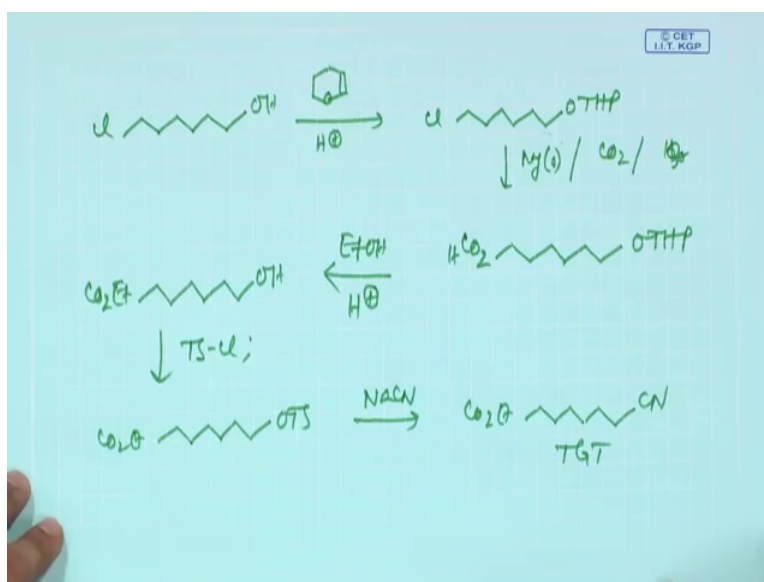 © CET
I.I.T. KGP
Cl OH H⊕ Cl OTHP
Mg(0) / CO2 /
HCO2 OTHP
EtOH
H⊕
CO2Et OH
TS-Cl;
CO2Et OTS NaCN CO2Et CN
TGT